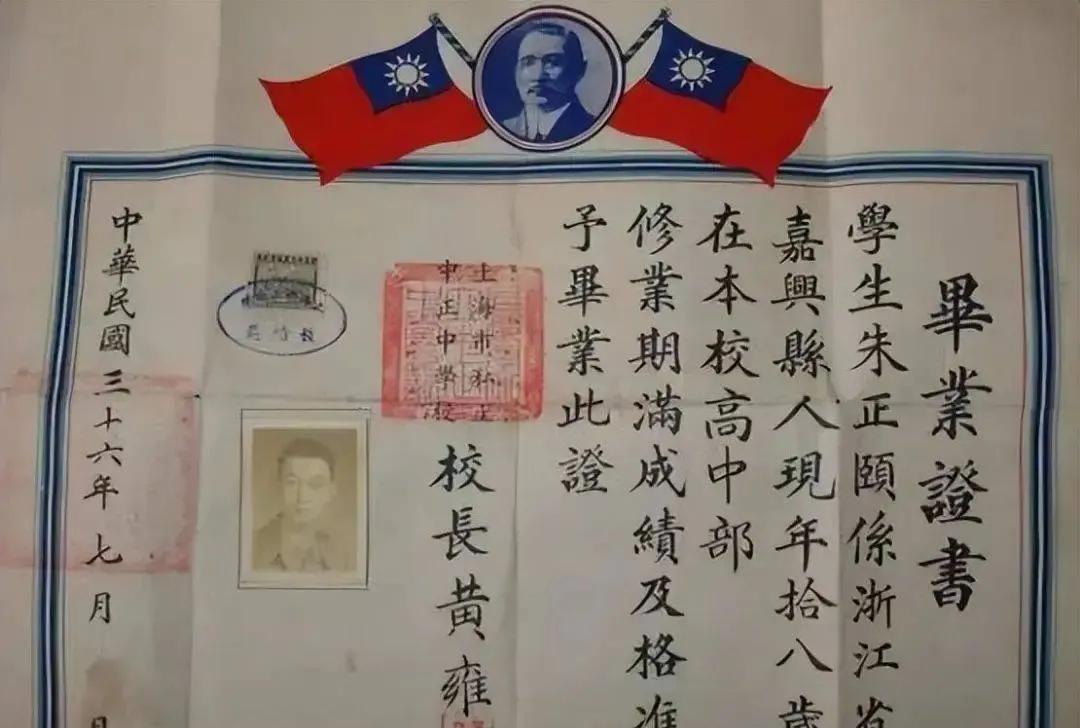 畢業證書
學生朱正頤係浙江省
嘉興縣人現年拾八歲
在本校高中部
修業期滿成績及格准
予畢業此證
上海市私立
中正中學校
校長黃雍
中華民國三十六年七月 日